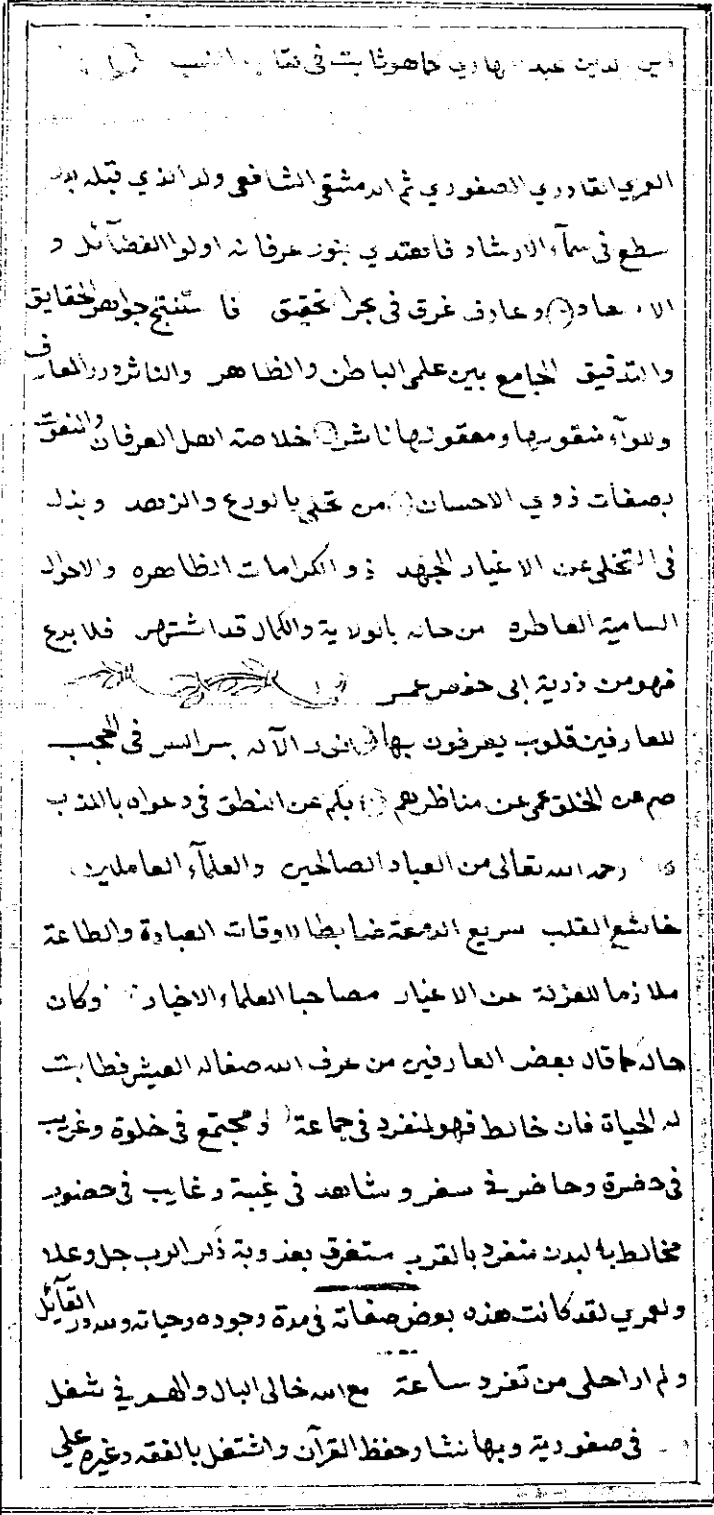 الدين عبد الهادي كما هو ثابت في نقابة النسب
العمري القادري الصفوري ثم الدمشقي الشافعي ولد الذي قبله بدر
سطع في سمآء الارشاد فاهتدي بنور عرفانه اولوا الفضآئل و
الاسعاد وعارف غرق في بحر التحقيق فاستنتج جواهر الحقايق
والتدقيق الجامع بين علمي الباطن والظاهر والناثر درر المعارف
وللوآء منقولها ومعقولها ناشر خلاصة اهل العرفان والنفوت
بصفات ذوي الاحسان من تحلي بالورع والزهد وبذل
في التخلي عن الاغيار الجهد ذو الكرامات الظاهره والاحوال
السامية العاطره من حاله بالولاية والكمال قد اشتهر فلا بدع
فهو من ذرية ابي حفص عمر
للعارفين قلوب يعرفون بها نور الآله بسر السر في الحجب
صم عن الخلق عمي عن مناظرهم بكم عن النطق في دعواه بالكذب
رحمه الله تعالى من العباد الصالحين والعلمآء العاملين
خاشع القلب سريع الدمعة ضابطا لاوقات العبادة والطاعة
ملازما للعزلة عن الاغيار مصاحبا العلماء الاخيار وكان
حاله كما قال بعض العارفين من عرف الله صفا له العيش فطابت
له الحياة فان خالط فهو لمنفرد في جماعة او مجتمع في خلوة وغريب
في حضرة وحاضر في سفر وشاهد في غيبة وغايب في حضور
مخالط بالبدن منفرد بالقرب مستغرق بعذوبة ذكر الرب جل وعلا
ولعمري لقد كانت هذه بعض صفاته في مدة وجوده وحياته ولله در القآئل
ولم ار احلى من تفرد ساعة مع الله خالي البال والهم في شغل
في صفورية وبها نشا وحفظ القرآن واشتغل بالفقه وغيره علي